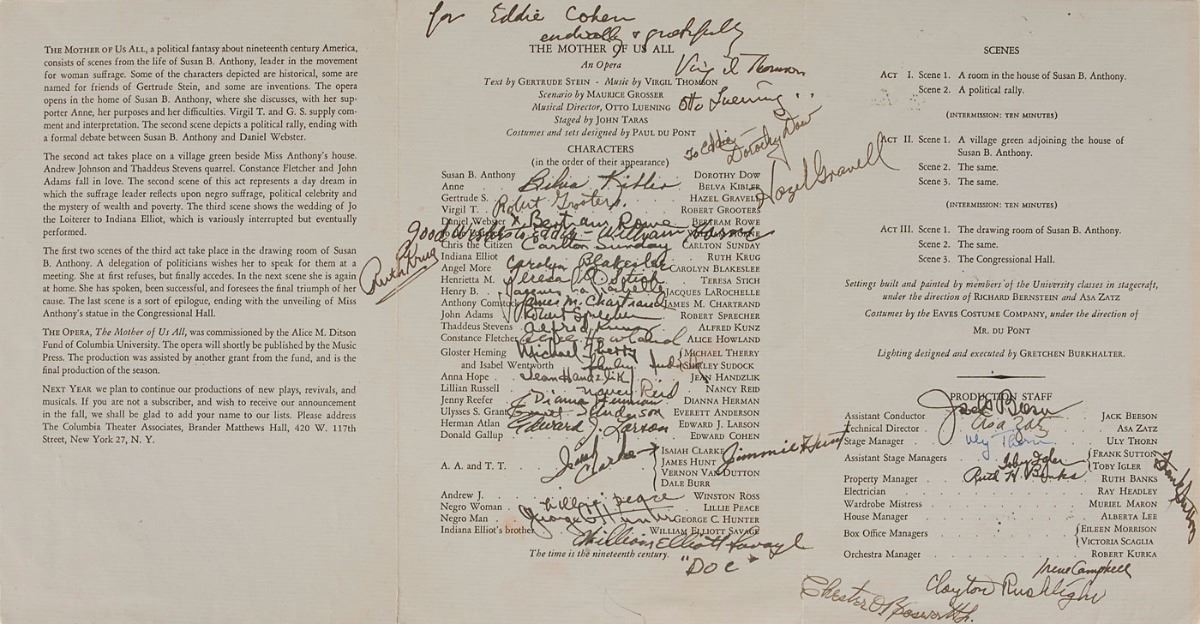 THE MOTHER OF US ALL, a political fantasy about nineteenth century America,
consists of scenes from the life of Susan B. Anthony, leader in the movement
for woman suffrage. Some of the characters depicted are historical, some are
named for friends of Gertrude Stein, and some are inventions. The opera
opens in the home of Susan B. Anthony, where she discusses, with her sup-
porter Anne, her purposes and her difficulties. Virgil T. and G. S. supply com-
ment and interpretation. The second scene depicts a political rally, ending with
a formal debate between Susan B. Anthony and Daniel Webster.
The second act takes place on a village green beside Miss Anthony's house.
Andrew Johnson and Thaddeus Stevens quarrel. Constance Fletcher and John
Adams fall in love. The second scene of this act represents a day dream in
which the suffrage leader reflects upon negro suffrage, political celebrity and
the mystery of wealth and poverty. The third scene shows the wedding of Jo
the Loiterer to Indiana Elliot, which is variously interrupted but eventually
performed.
The first two scenes of the third act take place in the drawing room of Susan
B. Anthony. A delegation of politicians wishes her to speak for them at a
meeting. She at first refuses, but finally accedes. In the next scene she is again
at home. She has spoken, been successful, and foresees the final triumph of her
cause. The last scene is a sort of epilogue, ending with the unveiling of Miss
Anthony's statue in the Congressional Hall.
THE OPERA, The Mother of Us All, was commissioned by the Alice M. Ditson
Fund of Columbia University. The opera will shortly be published by the Music
Press. The production was assisted by another grant from the fund, and is the
final production of the season.
NEXT YEAR we plan to continue our productions of new plays, revivals, and
musicals. If you are not a subscriber, and wish to receive our announcement
in the fall, we shall be glad to add your name to our lists. Please address
The Columbia Theater Associates, Brander Matthews Hall, 420 W. 117th
Street, New York 27, N. Y.
for Eddie Cohen
cordially & gratefully
THE MOTHER OF US ALL
An Opera
Virgil Thomson
Text by GERTRUDE STEIN - Music by VIRGIL THOMSON
Scenario by MAURICE GROSSER
Musical Director, OTTO LUENING
Otto Luening
Staged by JOHN TARAS
Costumes and sets designed by PAUL DU PONT
To Eddie
Dorothy Dow
CHARACTERS
(in the order of their appearance)
Hazel Gravell
Susan B. Anthony DOROTHY DOW
Anne Belva Kibler BELVA KIBLER
Gertrude S. HAZEL GRAVELL
Virgil T. Robert Grooters. ROBERT GROOTERS
Daniel Webster Bertram Rowe BERTRAM ROWE
Good Wishes to Eddie - William Horne
Chris the Citizen Carlton Sunday CARLTON SUNDAY
Indiana Elliot RUTH KRUG
Ruth Krug
Angel More Carolyn Blakeslee CAROLYN BLAKESLEE
Henrietta M. Teresa Stich TERESA STICH
Henry B. Jacques LaRochelle JACQUES LAROCHELLE
Anthony Comstock James M. Chartrand JAMES M. CHARTRAND
John Adams Robert Sprecher ROBERT SPRECHER
Thaddeus Stevens Alfred Kunz ALFRED KUNZ
Constance Fletcher Alice Howland ALICE HOWLAND
Gloster Heming Michael Therry MICHAEL THERRY
and Isabel Wentworth Shirley Sudock SHIRLEY SUDOCK
Anna Hope Jean Handzlik JEAN HANDZLIK
Lillian Russell Nancy Reid NANCY REID
Jenny Reefer Dianna Herman DIANNA HERMAN
Ulysses S. Grant Everett Anderson EVERETT ANDERSON
Herman Atlan Edward J. Larson EDWARD J. LARSON
Donald Gallup EDWARD COHEN
A. A. and T. T. Isaiah Clarke ISAIAH CLARKE
JAMES HUNT Jimmie Hunt
VERNON VAN DUTTON
DALE BURR
Andrew J. WINSTON ROSS
Negro Woman Lillie Peace LILLIE PEACE
Negro Man George C. Hunter GEORGE C. HUNTER
Indiana Elliot's brother WILLIAM ELLIOTT SAVAGE
William Elliott Savage
The time is the nineteenth century.
"DOC"
SCENES
ACT I. Scene 1. A room in the house of Susan B. Anthony.
Scene 2. A political rally.
(INTERMISSION: TEN MINUTES)
ACT II. Scene 1. A village green adjoining the house of
Susan B. Anthony.
Scene 2. The same.
Scene 3. The same.
(INTERMISSION: TEN MINUTES)
ACT III. Scene 1. The drawing room of Susan B. Anthony.
Scene 2. The same.
Scene 3. The Congressional Hall.
Settings built and painted by members of the University classes in stagecraft,
under the direction of RICHARD BERNSTEIN and ASA ZATZ
Costumes by the EAVES COSTUME COMPANY, under the direction of
MR. DU PONT
Lighting designed and executed by GRETCHEN BURKHALTER.
PRODUCTION STAFF
Assistant Conductor Jack Beeson JACK BEESON
Technical Director Asa Zatz ASA ZATZ
Stage Manager Uly Thorn ULY THORN
Assistant Stage Managers FRANK SUTTON
Toby Igler TOBY IGLER
Frank Sutton
Property Manager Ruth H. Banks RUTH BANKS
Electrician RAY HEADLEY
Wardrobe Mistress MURIEL MARON
House Manager ALBERTA LEE
Box Office Managers EILEEN MORRISON
VICTORIA SCAGLIA
Orchestra Manager ROBERT KURKA
Irene Campbell
Clayton Rushlight
Chester O. Bosworth Jr.